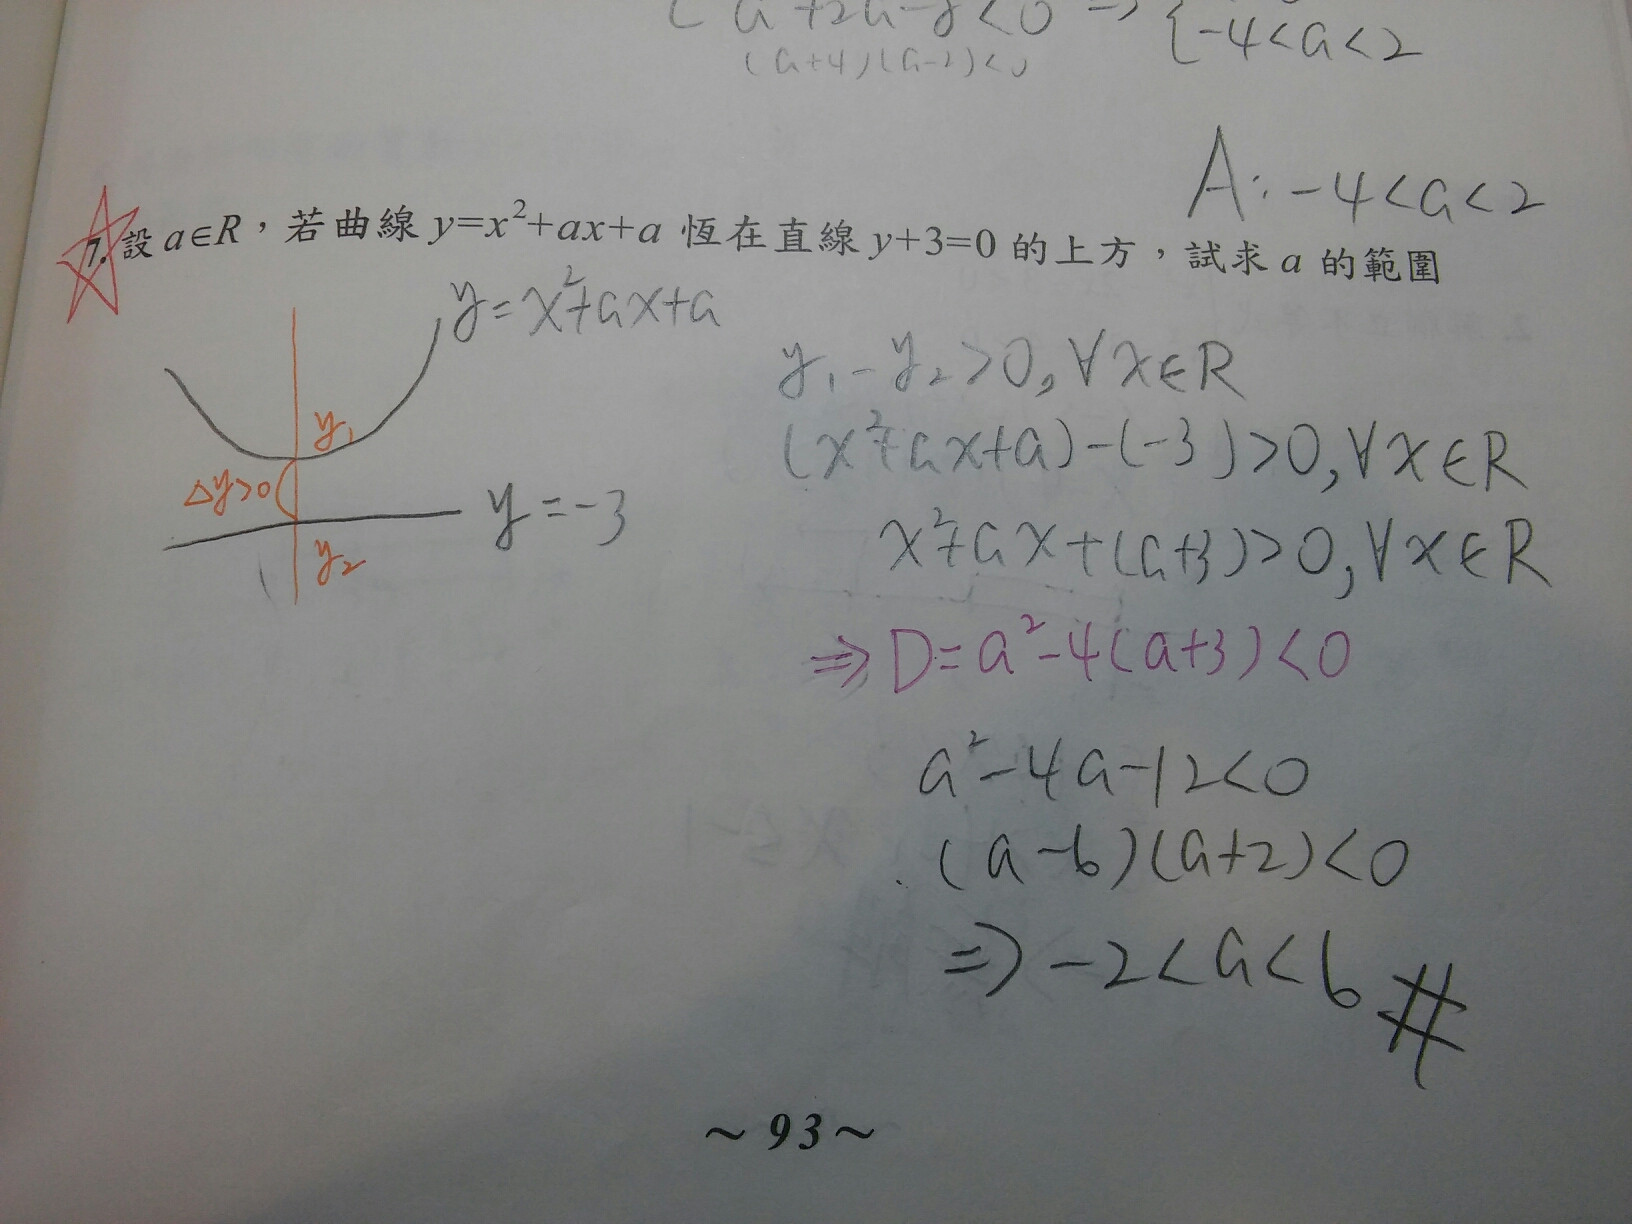 a²+2a-8<0 ⇒ {-4<a<2
(a+4)(a-2)<0
A:-4<a<2
7. 設 a∈R，若曲線 y=x²+ax+a 恆在直線 y+3=0 的上方，試求 a 的範圍
y=x²+ax+a
y₁
Δy>0
y=-3
y₂
y₁-y₂>0,∀x∈R
(x²+ax+a)-(-3)>0,∀x∈R
x²+ax+(a+3)>0,∀x∈R
⇒D=a²-4(a+3)<0
a²-4a-12<0
(a-6)(a+2)<0
⇒-2<a<6 #
~93~